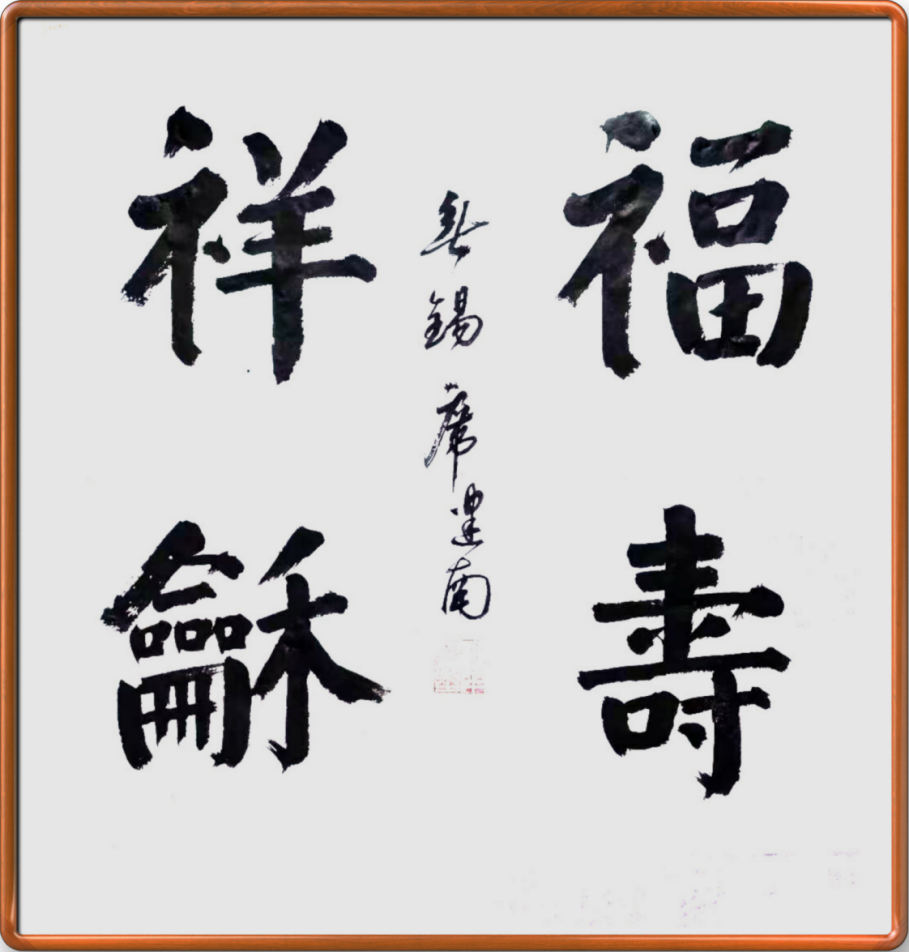 福壽
無錫席建南
祥龢